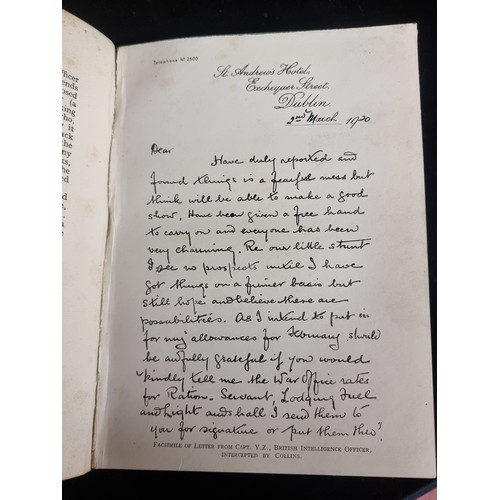 ficer
ends
osed
(a
king
ho,
it
ack
the
ny
ks,
the
ed
Telephone Nº 2656
St. Andrew's Hotel,
Exchequer Street,
Dublin.
2nd March 1920
Dear
Have duly reported and
found things is a fearful mess but
think will be able to make a good
show, Have been given a free hand
to carry on and everyone has been
very charming. Re our little stunt
I see no prospects until I have
got things on a firmer basis but
still hope and believe there are
possabilities. As I intend to put in
for my allowances for February should
be awfully grateful if you would
kindly tell me the War Office rates
for Ration. Servant, Lodging Fuel
and Light and shall I send them to
you for signature or put them thro'?
Facsimile of Letter from Capt. Y.Z., British Intelligence Officer,
intercepted by Collins.